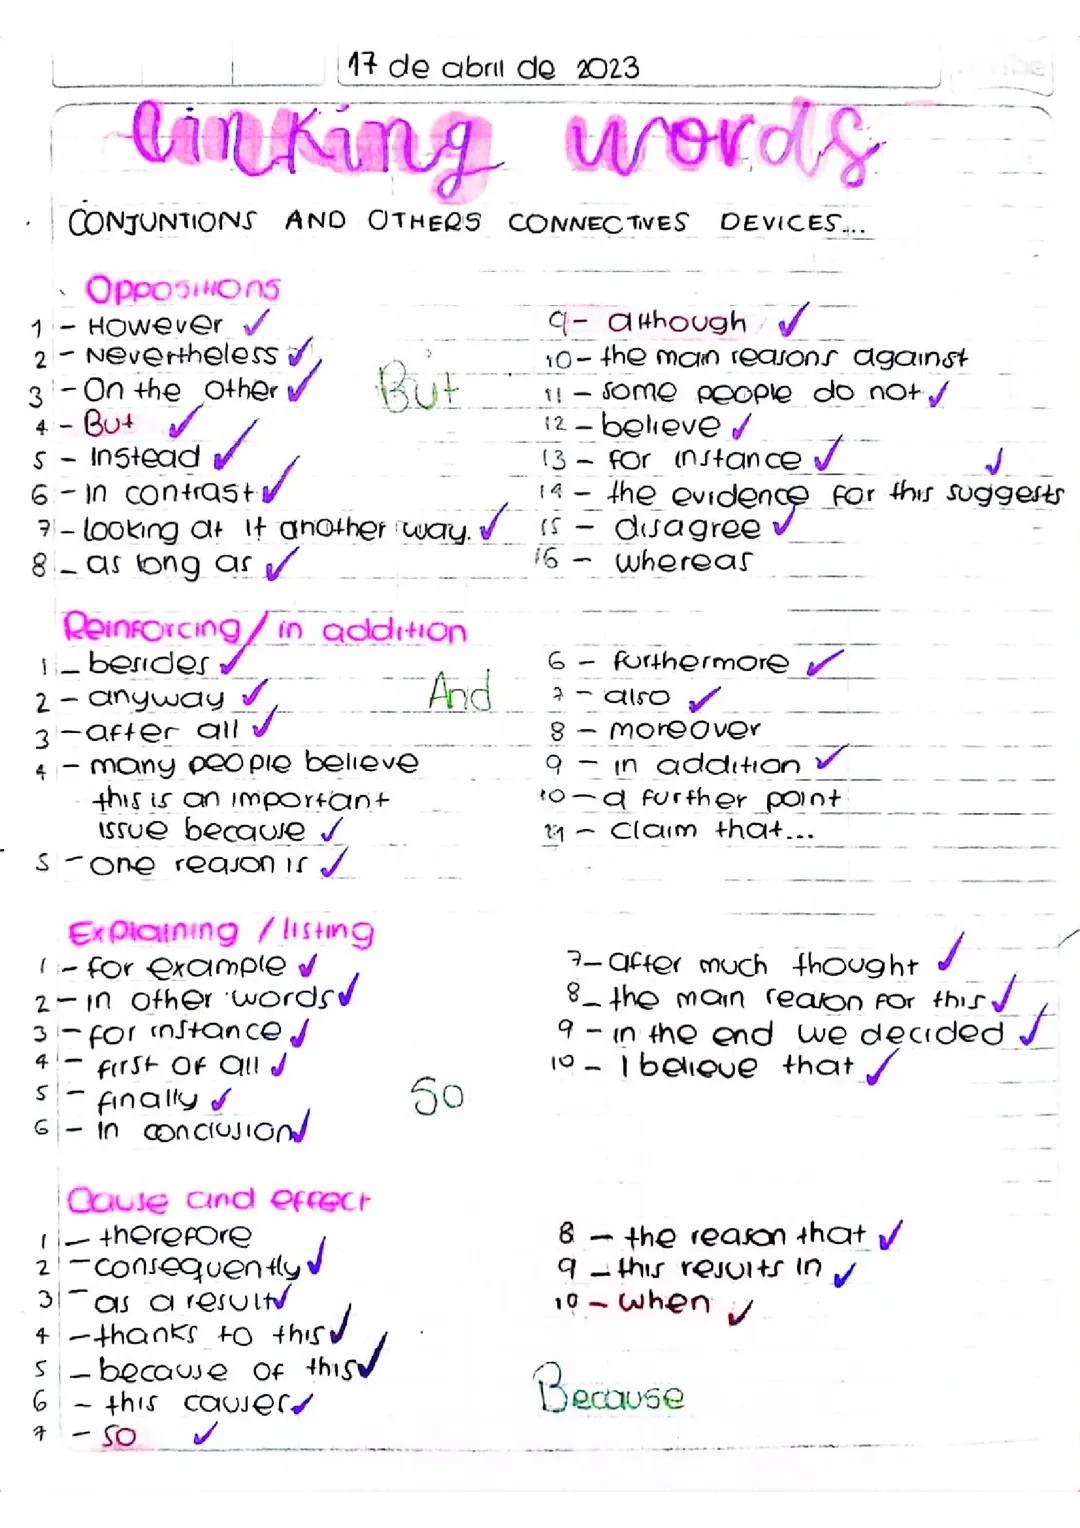 17 de abril de 2023
linking words
CONJUNTIONS AND OTHERS CONNECTIVES DEVICES...
Oppositions
1 - However ✓
2 - Nevertheless ✓
3 - On the other ✓
4 - But ✓
5 - Instead ✓
6 - In contrast ✓
7 - looking at it another way. ✓
8 - as long as ✓
But
9 - although ✓
10 - the main reasons against
11 - some people do not ✓
12 - believe ✓
13 - for instance ✓
14 - the evidence for this suggests ✓
15 - disagree ✓
16 - whereas
Reinforcing / in addition
1 - besides ✓
2 - anyway ✓
3 - after all ✓
4 - many people believe
this is an important
issue because ✓
5 - one reason is ✓
And
6 - furthermore ✓
7 - also ✓
8 - moreover
9 - in addition ✓
10 - a further point
11 - claim that...
Explaining / listing
1 - for example ✓
2 - in other words ✓
3 - for instance ✓
4 - first of all ✓
5 - finally ✓
6 - In conclusion ✓
So
7 - after much thought ✓
8 - the main reason for this ✓
9 - in the end we decided ✓
10 - I believe that ✓
Cause and effect
1 - therefore
2 - consequently ✓
3 - as a result ✓
4 - thanks to this ✓
5 - because of this ✓
6 - this causes ✓
7 - so ✓
8 - the reason that ✓
9 - this results in ✓
10 - when ✓
Because